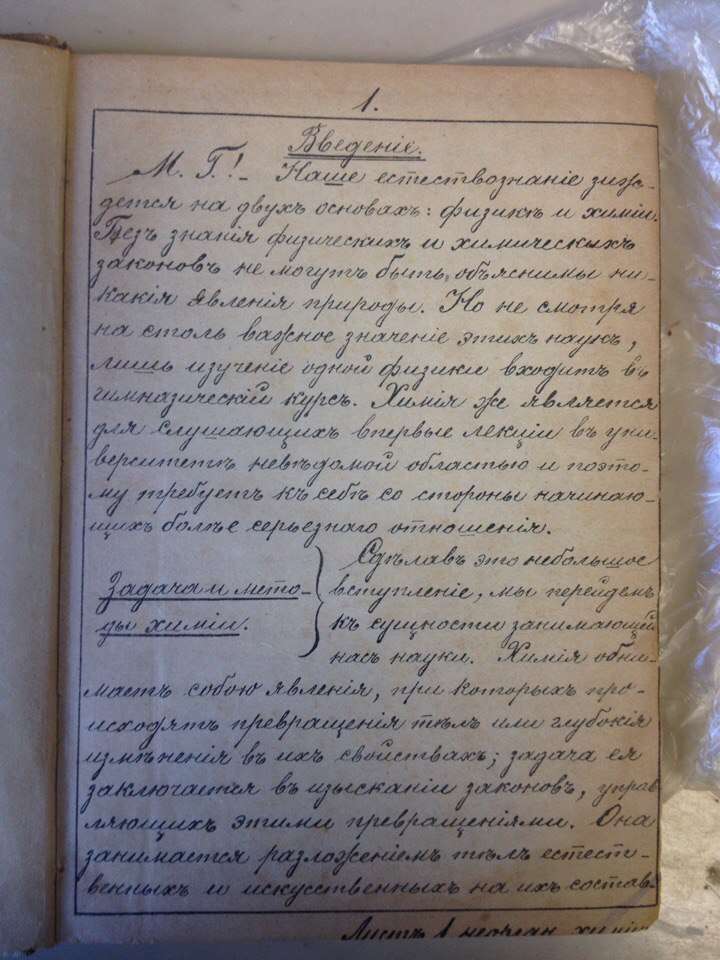 1.
Введеніе.
М. Г.! — Наше естествознаніе зиж-
дется на двухъ основахъ: физикѣ и химіи.
Безъ знанія физическихъ и химическихъ
законовъ не могутъ быть объяснимы ни-
какія явленія природы. Но не смотря
на столь важное значеніе этихъ наукъ,
лишь изученіе одной физики входитъ въ
гимназическій курсъ. Химія же является
для слушающихъ впервые лекціи въ уни-
верситетѣ невѣдомой областью и поэто-
му требуетъ къ себѣ со стороны начинаю-
щихъ болѣе серьезнаго отношенія.
Задача и мето-
ды химіи.
Сдѣлавъ это небольшое
вступленіе, мы перейдемъ
къ сущности занимающей
насъ науки. Химія обни-
маетъ собою явленія, при которыхъ про-
исходятъ превращенія тѣлъ или глубокія
измѣненія въ ихъ свойствахъ; задача ея
заключается въ изысканіи законовъ, управ-
ляющихъ этими превращеніями. Она
занимается разложеніемъ тѣлъ естест-
венныхъ и искусственныхъ на ихъ состав-
Листъ 1 неорган. химіи